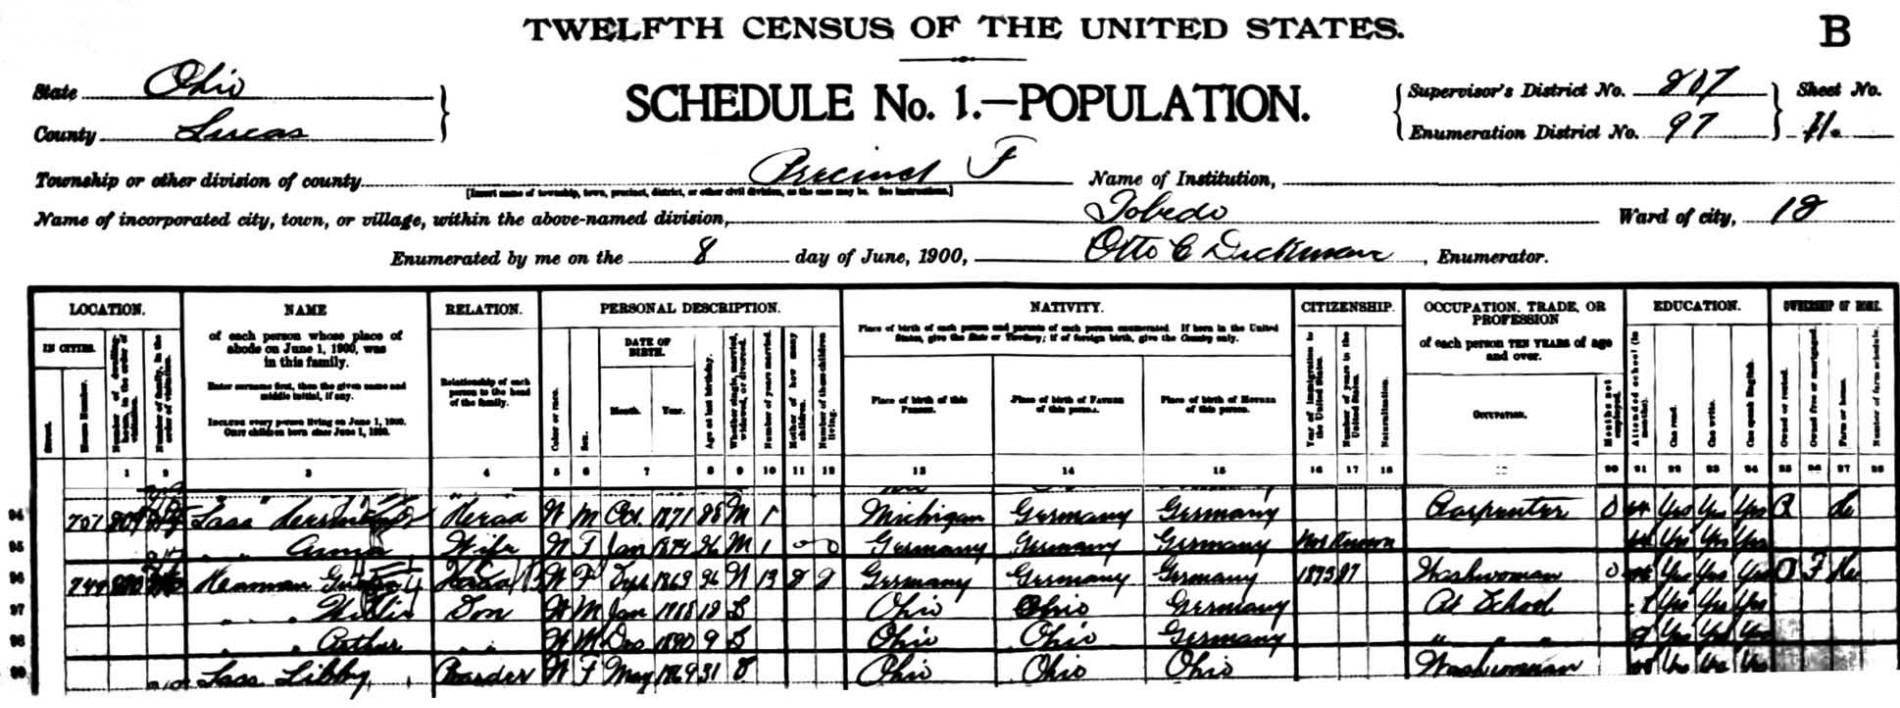 TWELFTH CENSUS OF THE UNITED STATES.
B
State Ohio
County Lucas
SCHEDULE No. 1.—POPULATION.
Supervisor's District No.
Enumeration District No. 97
Sheet No.
Township or other division of county Precinct F
[Insert name of township, town, precinct, district, or other civil division, as the case may be. See instructions.]
Name of Institution,
Name of incorporated city, town, or village, within the above-named division, Toledo
Ward of city,
Enumerated by me on the 8 day of June, 1900, Otto C Dickman, Enumerator.
LOCATION. NAME RELATION. PERSONAL DESCRIPTION. NATIVITY. CITIZENSHIP. OCCUPATION, TRADE, OR PROFESSION EDUCATION. OWNERSHIP OF HOME.
IN CITIES.
Street.
House Number.
Number of dwelling-house, in the order of visitation.
Number of family, in the order of visitation.
of each person whose place of abode on June 1, 1900, was in this family.
Enter surname first, then the given name and middle initial, if any.
Include every person living on June 1, 1900.
Omit children born since June 1, 1900.
Relationship of each person to the head of the family.
Color or race.
Sex.
DATE OF BIRTH.
Month. Year.
Age at last birthday.
Whether single, married, widowed, or divorced.
Number of years married.
Mother of how many children.
Number of these children living.
Place of birth of each person and parents of each person enumerated. If born in the United States, give the State or Territory; if of foreign birth, give the Country only.
Place of birth of this Person.
Place of birth of Father of this person.
Place of birth of Mother of this person.
Year of immigration to the United States.
Number of years in the United States.
Naturalization.
of each person TEN YEARS of age and over.
Occupation.
Months not employed.
Attended school (in months).
Can read.
Can write.
Can speak English.
Owned or rented.
Owned free or mortgaged.
Farm or house.
Number of farm schedule.
1 2 3 4 5 6 7 8 9 10 11 12 13 14 15 16 17 18 20 21 22 23 24 25 26 27 28
94 Head W M Oct 1871 28 M 1 Michigan Germany Germany Carpenter 0 Yes Yes Yes R
95 Anna Wife W F Jan 1874 26 M 1 0 0 Germany Germany Germany Not Known Yes Yes Yes
96 W F Sept 1863 Germany Germany Germany 1873 27 Washwoman 0 Yes Yes Yes O F
97 Willie Son W M Jan 1888 12 S Ohio Ohio Germany At School Yes Yes Yes
98 Arthur W M Dec 1890 9 S Ohio Ohio Germany " " " 9 Yes Yes Yes
99 Lass Libby Boarder W F May 1869 31 S Ohio Ohio Ohio Washwoman Yes Yes Yes